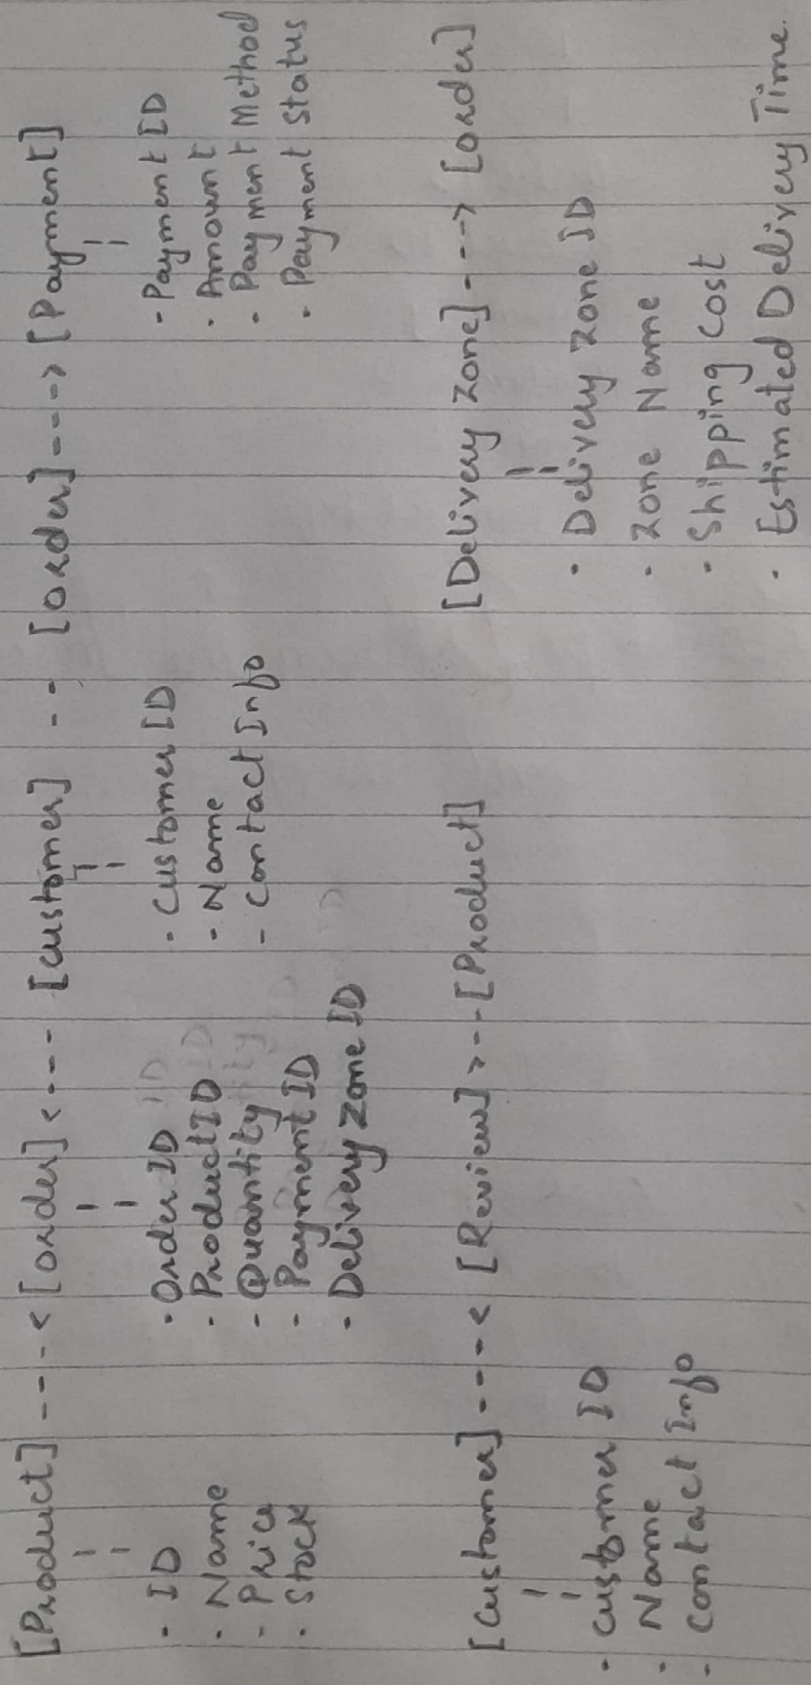 [Product] ---< [order] <--- [customer] -- [order] ---> [Payment]
· ID
· Name
- Price
· Stock
· Order ID
· Product ID
- Quantity
- Payment ID
· Delivery Zone ID
· Customer ID
· Name
- Contact Info
· Payment ID
· Amount
· Payment Method
· Payment Status
[Customer] ---< [Review] >--[Product]
· Customer ID
· Name
- Contact Info
[Delivery Zone] ---> [order]
· Delivery Zone ID
· Zone Name
· Shipping Cost
· Estimated Delivery Time.